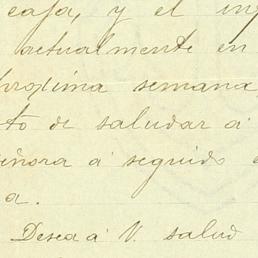 casa, y el in
actualmente en
próxima semana,
to de saludar á
eñora á seguido
a.
Desea á V. salud